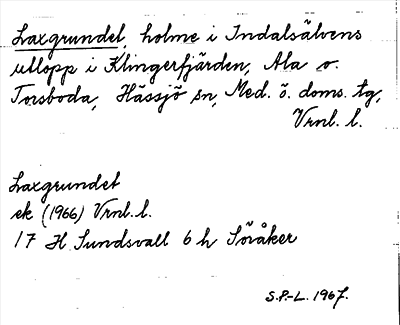 Laxgrundet, holme i Indalsälvens
utlopp i Klingerfjärden, Ala o.
Torsboda, Hässjö sn, Med. ö. doms. tg,
Vrnl. l.
Laxgrundet
ek (1966) Vrnl. l.
17 H Sundsvall 6 h Söråker
S.P.-L. 1967.